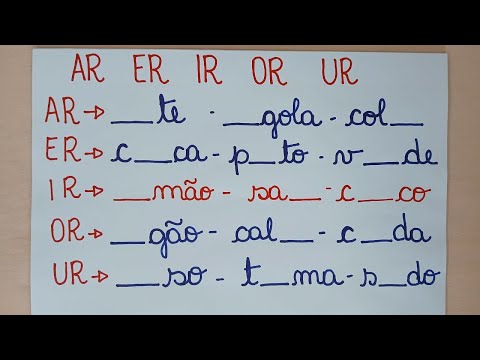 AR ER IR OR UR
AR→ __te - __gola - col__
ER→ c__ca - p__to - v__de
IR→ __mão - sa__ - c__co
OR→ __gão - cal__ - c__da
UR→ __so - t__ma - s__do